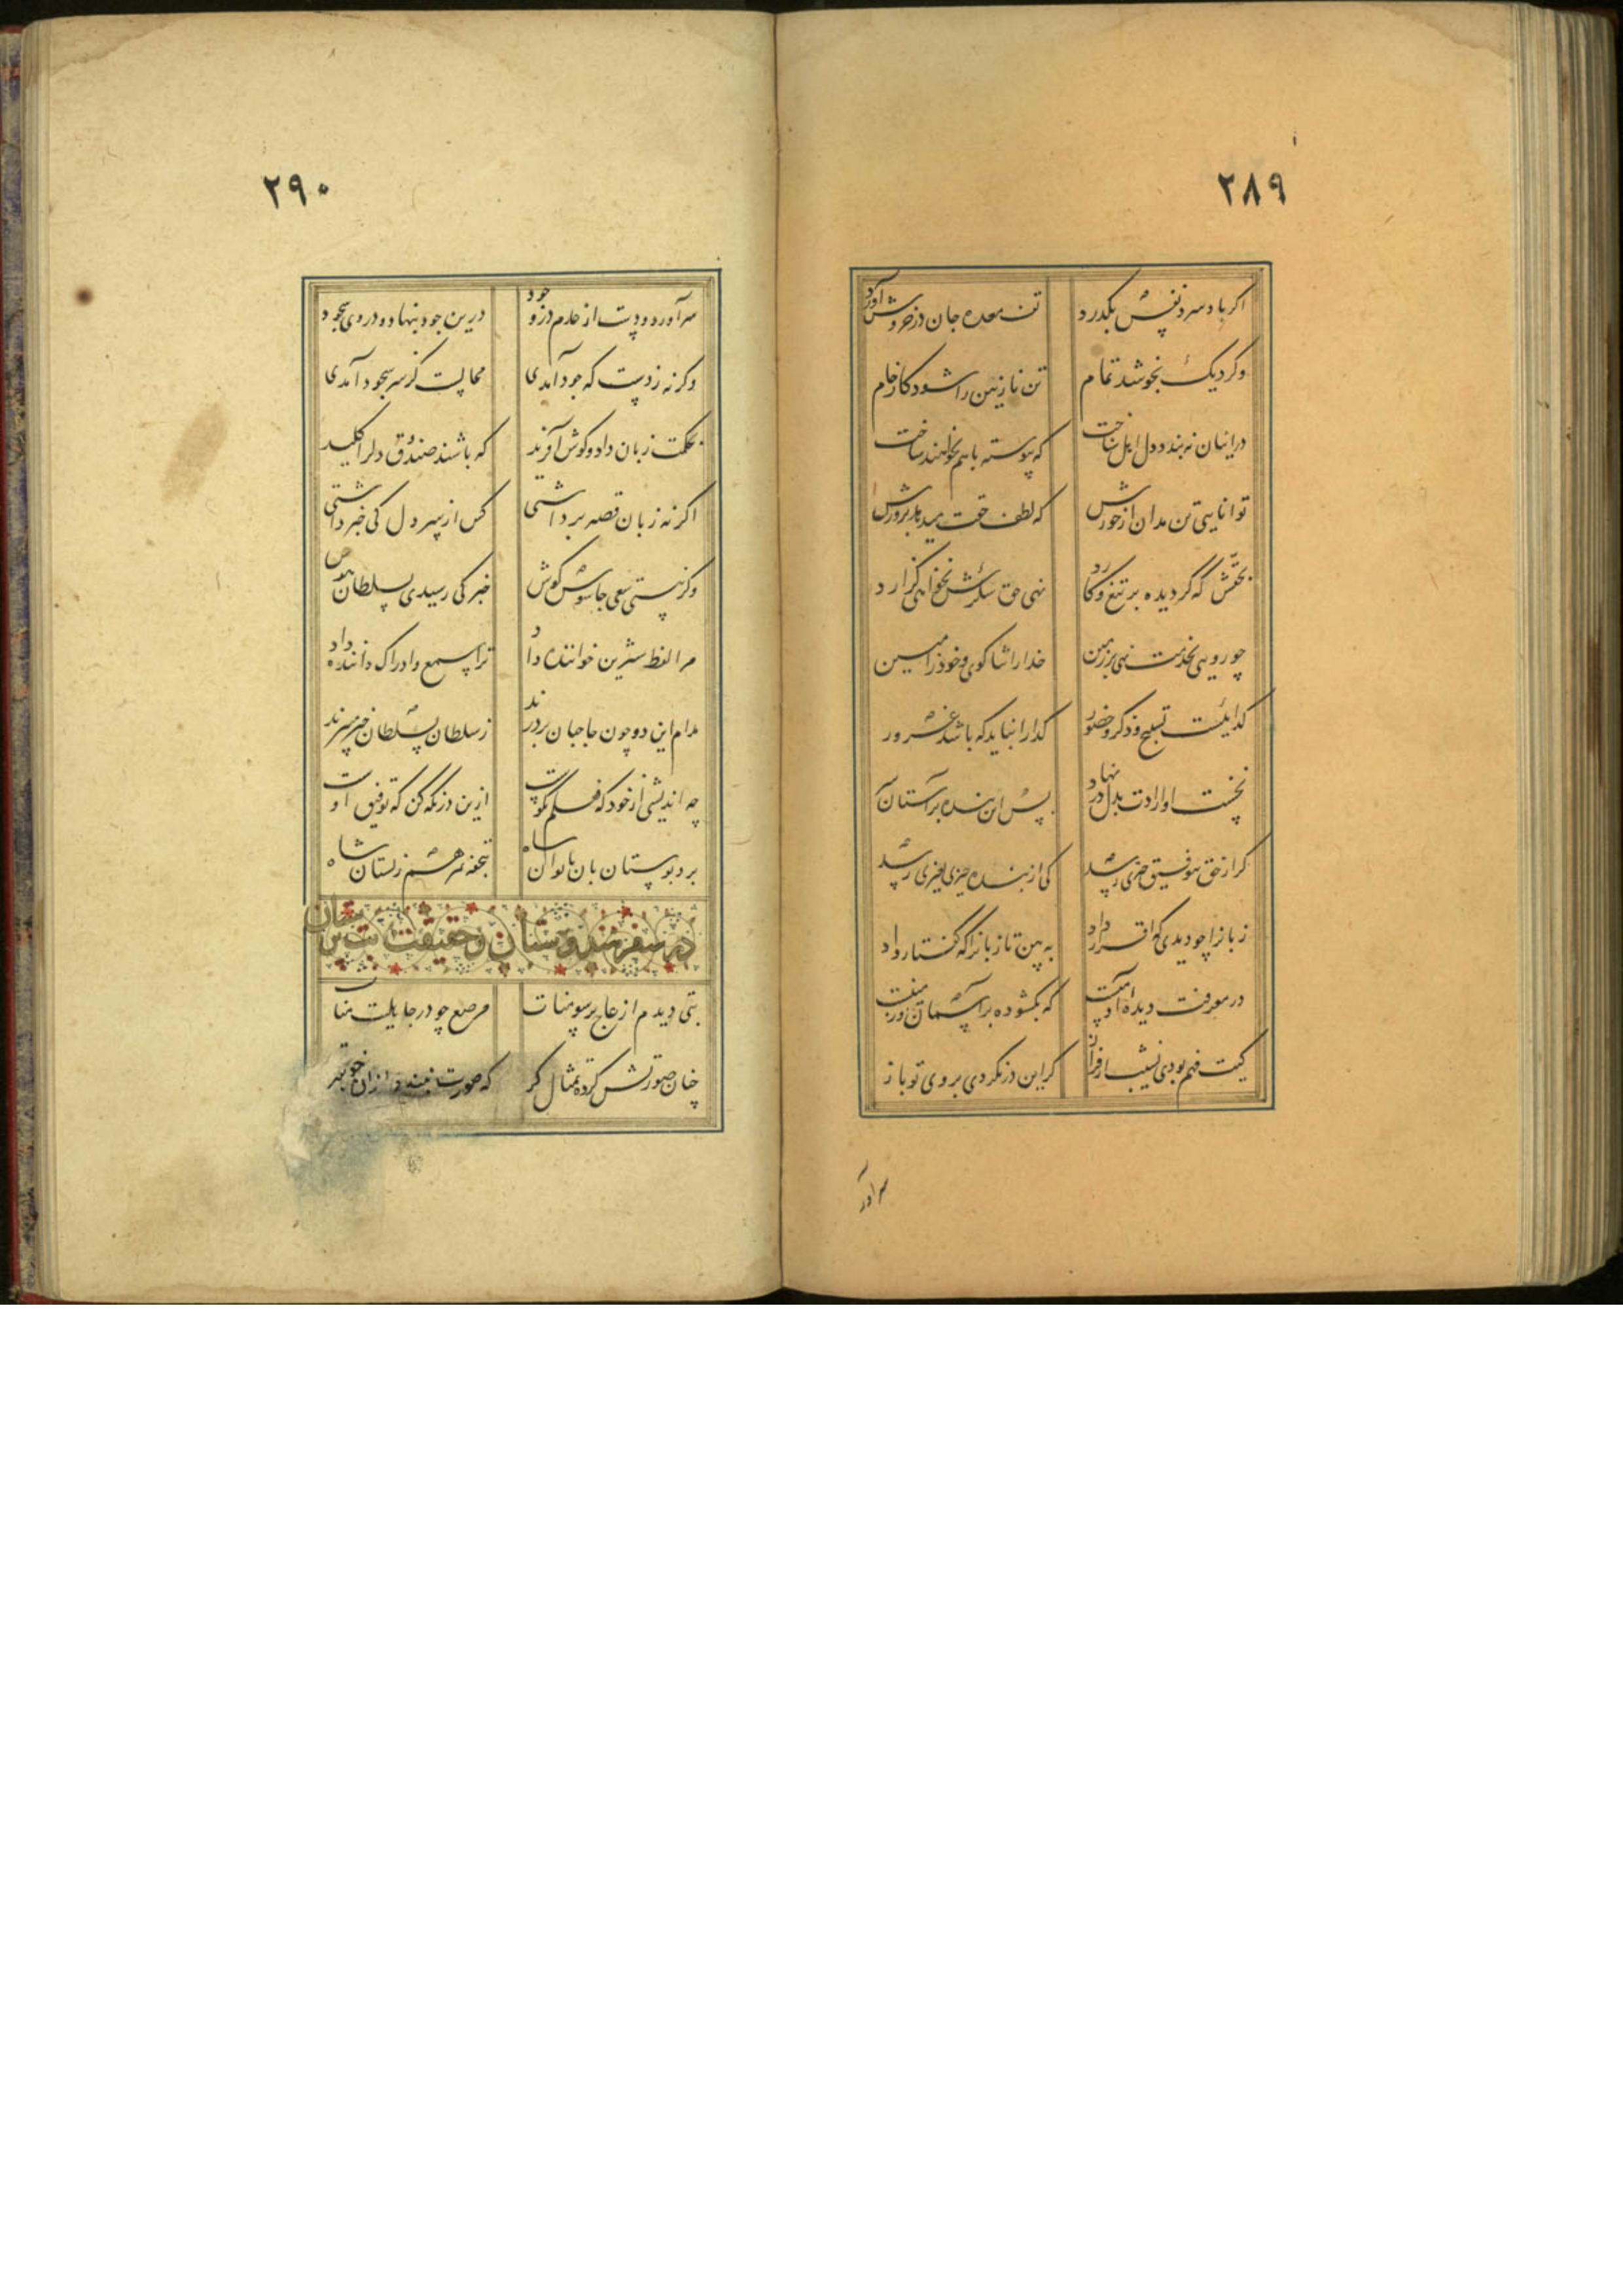 ۲۸۹
اگر باد سرد نفس نگذرد تف معده جان در خروش آورد
وگر دیگ نجوشد تمام تن نازنین را شود کار خام
در اینان نه بندد دل اهل شناخت که پیوسته باهم نخواهند ساخت
توانایی تن مدان از خورش که لطف حقت میدهد پرورش
بحقش که گر دیده بر تیغ و کارد نهی حق شکرش نخواهی گزارد
چو رویی بخدمت نهی بر زمین خدا را ثنا گوی و خود را مبین
گداییست تسبیح و ذکر و حضور گدا را نباید که باشد غرور
نخست او ارادت بدل در نهاد پس این بنده بر آستان
گر از حق نه توفیق خیری رسد کی از بنده خیری بغیری رسد
زبانرا چو دیدی که اقرار داد به بین تا زبانرا که گفتار داد
در معرفت دیده آدمیست که بگشوده بر آسمان و زمیست
کیت فهم بودی نشیب و فراز گر این در نکردی بروی تو باز
سر آور
۲۹۰
سر آورد و دست از عدم در وجود درین جود بنهاد و در وی سجود
وگر نه ز دست که جود آمدی محالست کز سر سجود آمدی
بحکمت زبان داد و گوش آفرید که باشند صندوق دلرا کلید
اگر نه زبان قصه برداشتی کس از سر دل کی خبر داشتی
وگر نیستی سعی جاسوس گوش خبر کی رسیدی بسلطان هوش
مرا لفظ شیرین خواننده داد ترا سمع و ادراک داننده داد
مدام این دو چون حاجبان بر درند ز سلطان بسلطان خبر میبرند
چه اندیشی از خود که فعلم نکوست ازین در نگه کن که توفیق اوست
برد بوستان بان بایوان شاه بتحفه ثمر هم ز بستان شاه
در سفر هندوستان و حقیقت بت پرستان
بتی دیدم از عاج بر سومنات مرصع چو در جاهلیت منات
چنان صورتش کرده تمثال گر که صورت نبندد از آن خوبتر